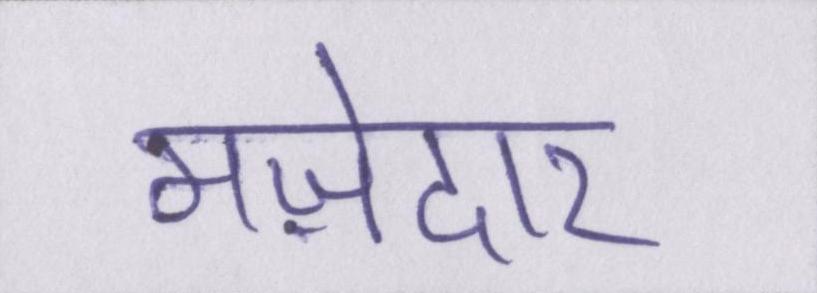 मज़ेदार